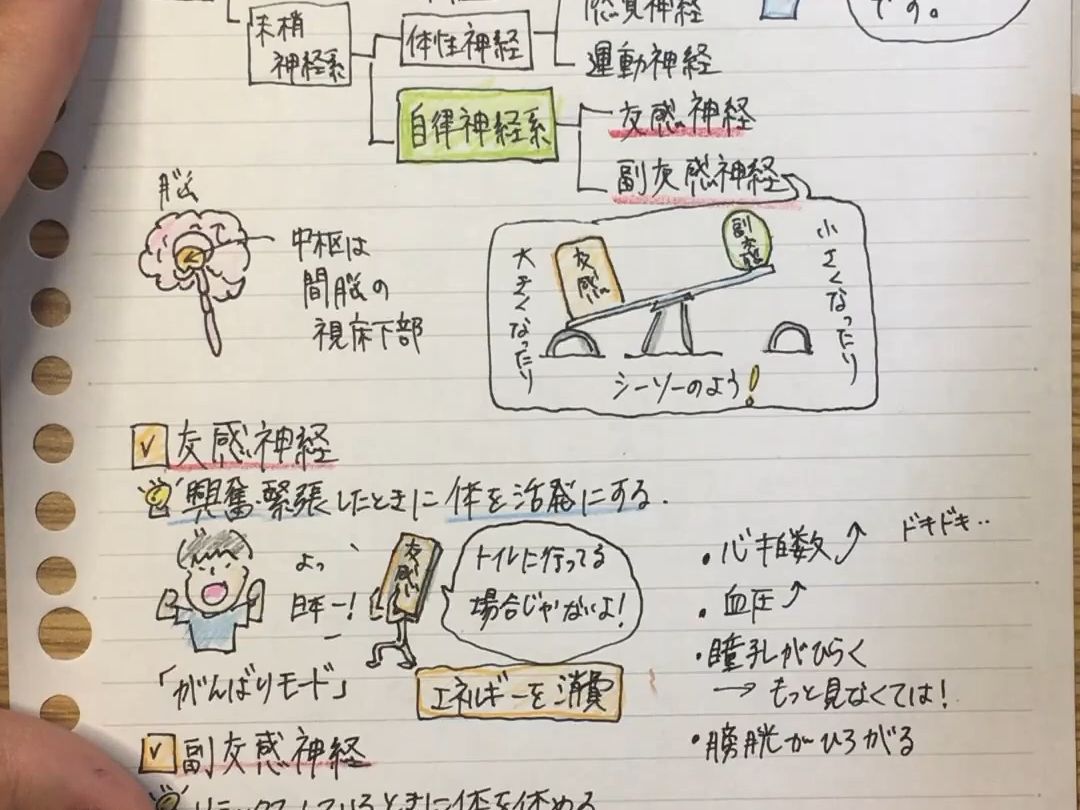 です。
末梢
神経系
体性神経
感覚神経
運動神経
自律神経系
交感神経
副交感神経
脳
中枢は
間脳の
視床下部
大きくなったり
交感
副交感
小さくなったり
シーソーのよう!
✓ 交感神経
興奮・緊張したときに体を活発にする.
よっ、
日本一!
交感
トイレに行ってる
場合じゃないよ!
「がんばりモード」
エネルギーを消費
・心拍数↗ ドキドキ..
・血圧↗
・瞳孔がひらく
→ もっと見なくては!
・膀胱がひろがる
✓ 副交感神経
リラックスしているときに体を休める